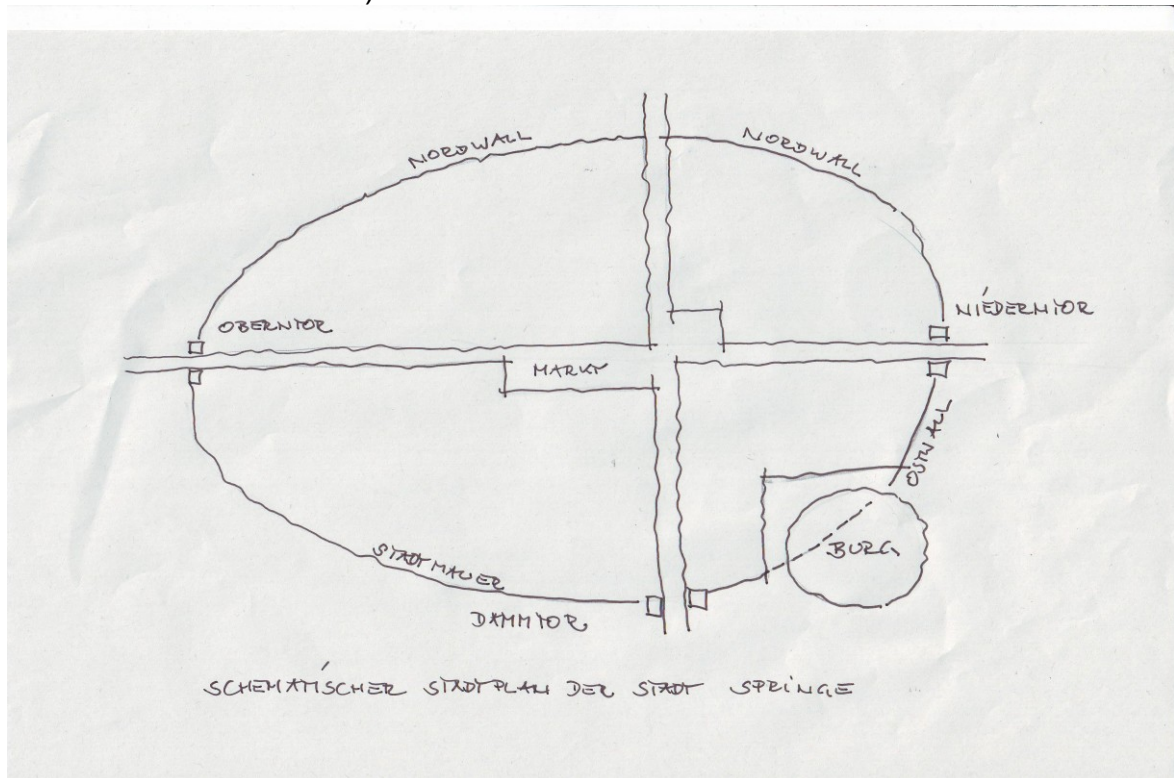 NORDWALL
NORDWALL
OBERNTOR
NIEDERNTOR
MARKT
OSTWALL
BURG
STADTMAUER
DAMMTOR
SCHEMATISCHER STADTPLAN DER STADT SPRINGE